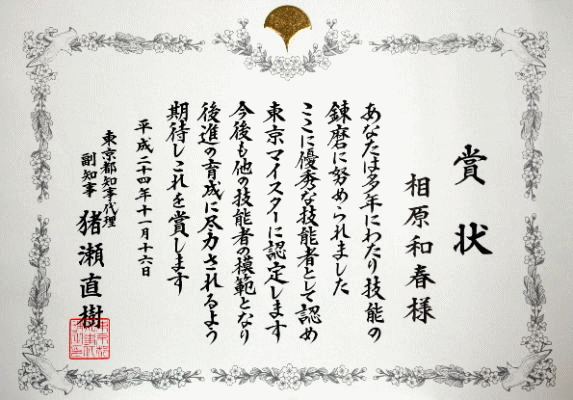 賞状
相原和春様
あなたは多年にわたり技能の
錬磨に努められました
ここに優秀な技能者として認め
東京マイスターに認定します
今後も他の技能者の模範となり
後進の育成に尽力されるよう
期待しこれを賞します
平成二十四年十一月十六日
東京都知事代理
副知事 猪瀬直樹